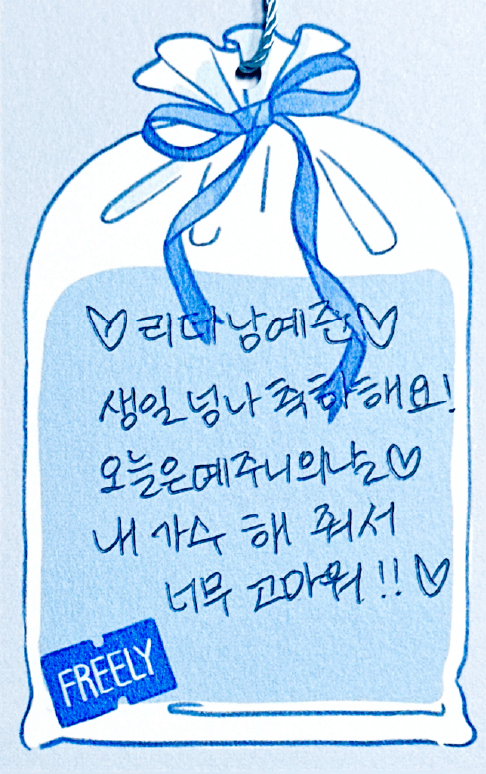 ♡리더남예준♡
생일 넝나 축하해요!
오늘은예주니의날♡
내 가수 해 줘서
너무 고마워!!♡
FREELY